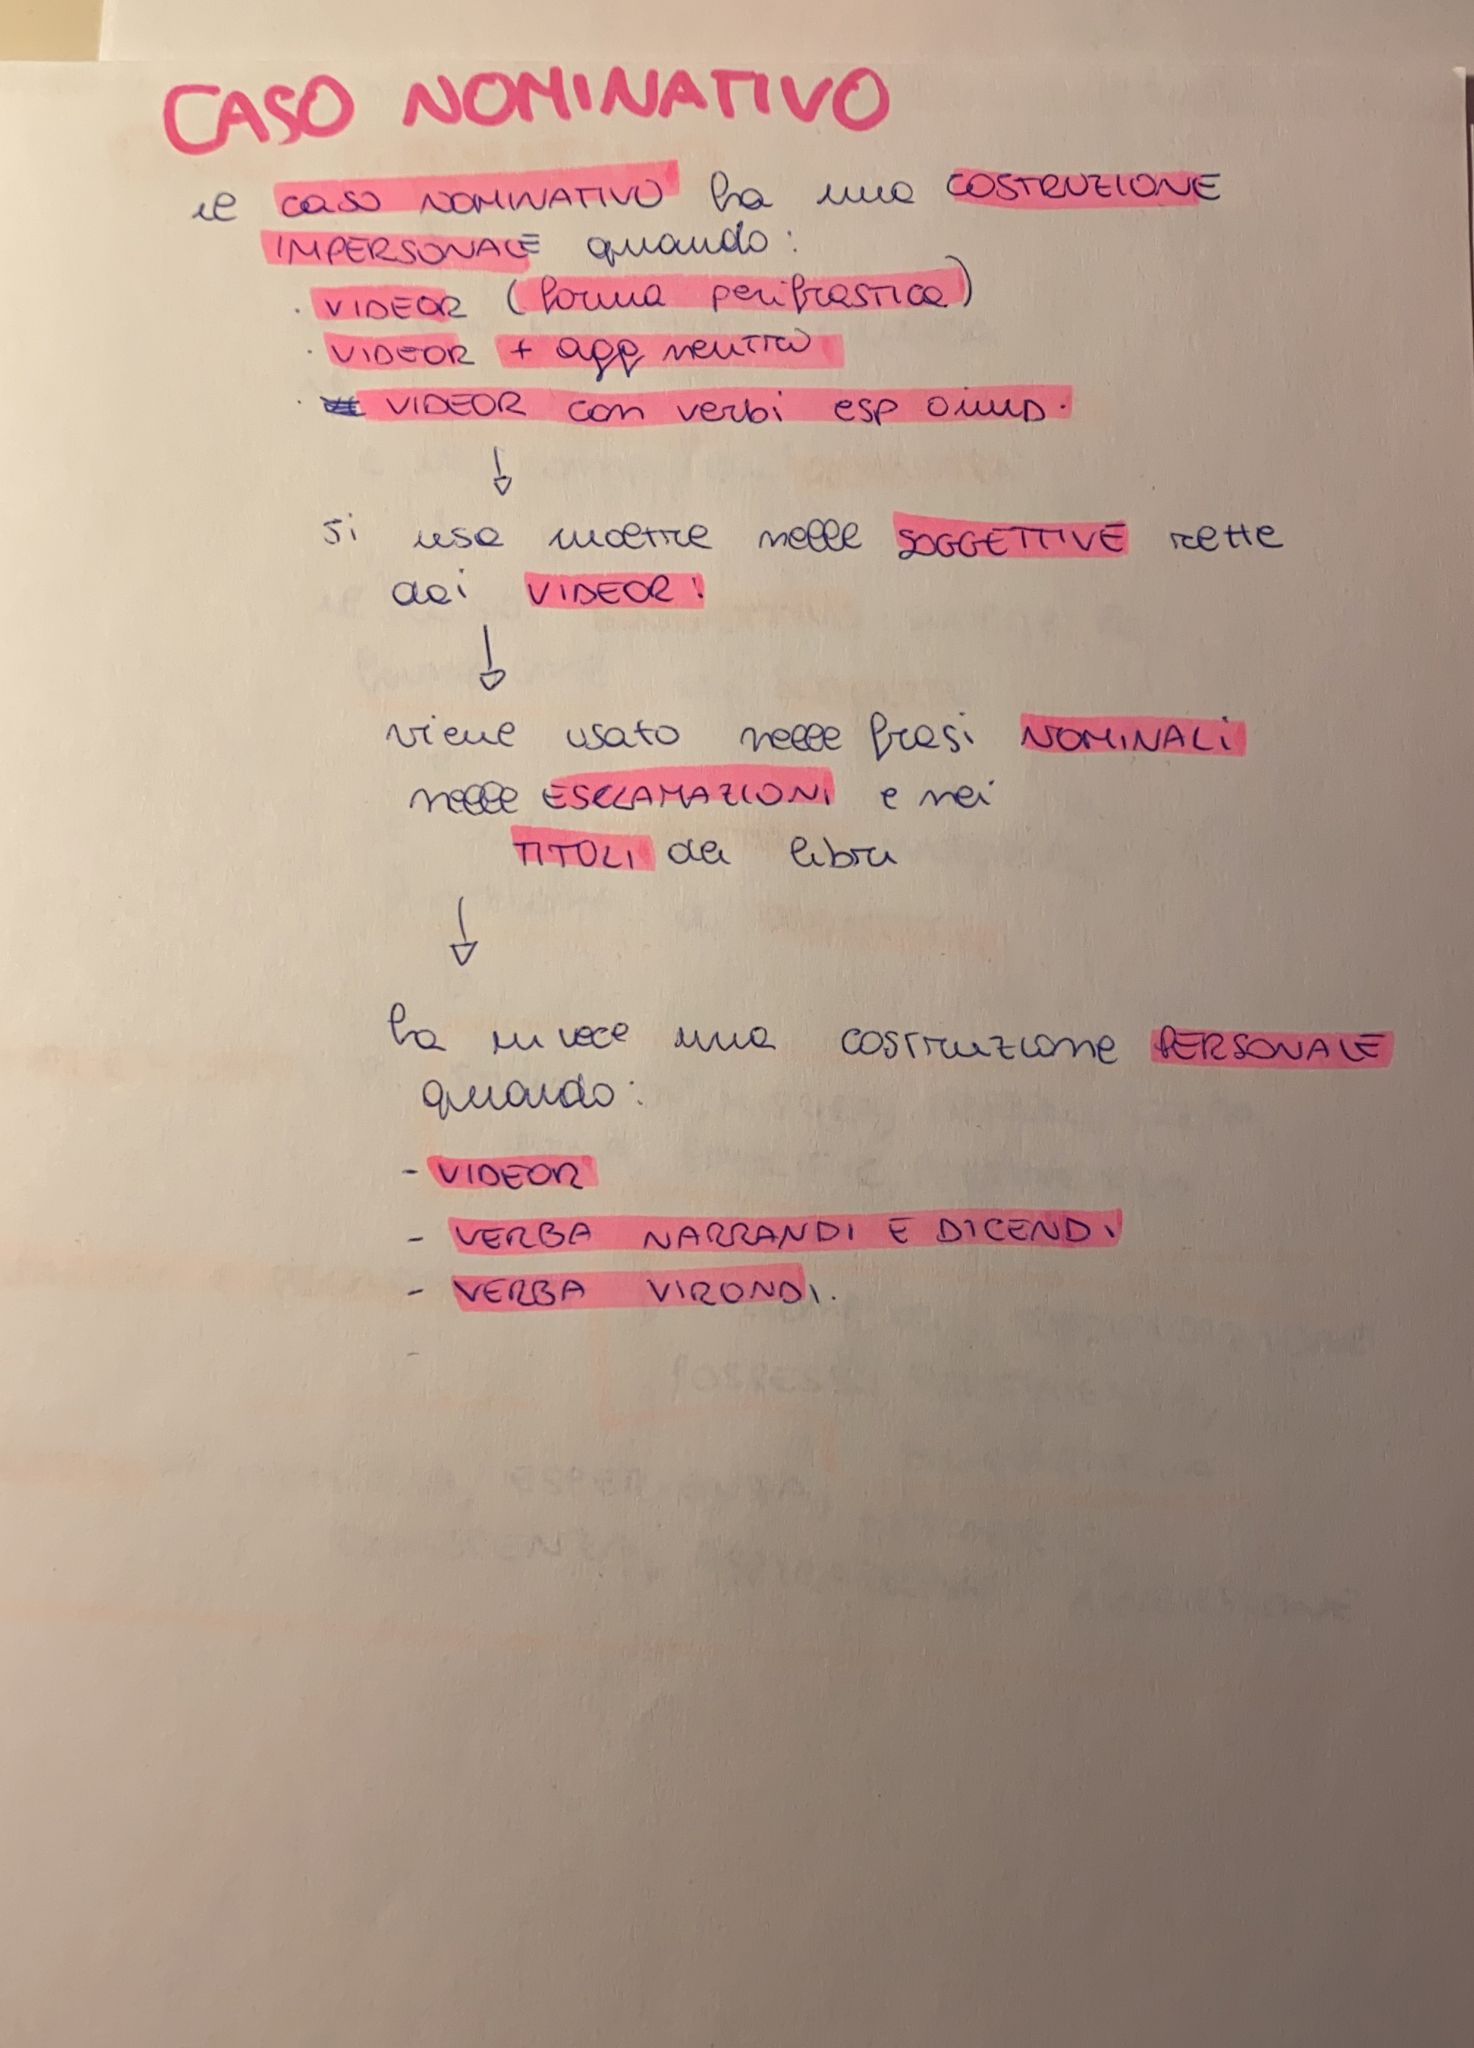 CASO NOMINATIVO
il CASO NOMINATIVO ha una COSTRUZIONE
IMPERSONALE quando:
· VIDEOR (forma perifrastica)
· VIDEOR + agg neutro
· VIDEOR con verbi esp
si usa inoltre nelle SOGGETTIVE rette
dai VIDEOR!
viene usato nelle frasi NOMINALI
nelle ESCLAMAZIONI e nei
TITOLI dei libri
ha invece una costruzione PERSONALE
quando:
- VIDEOR
- VERBA NARRANDI E DICENDI
- VERBA VIRONDI.
-